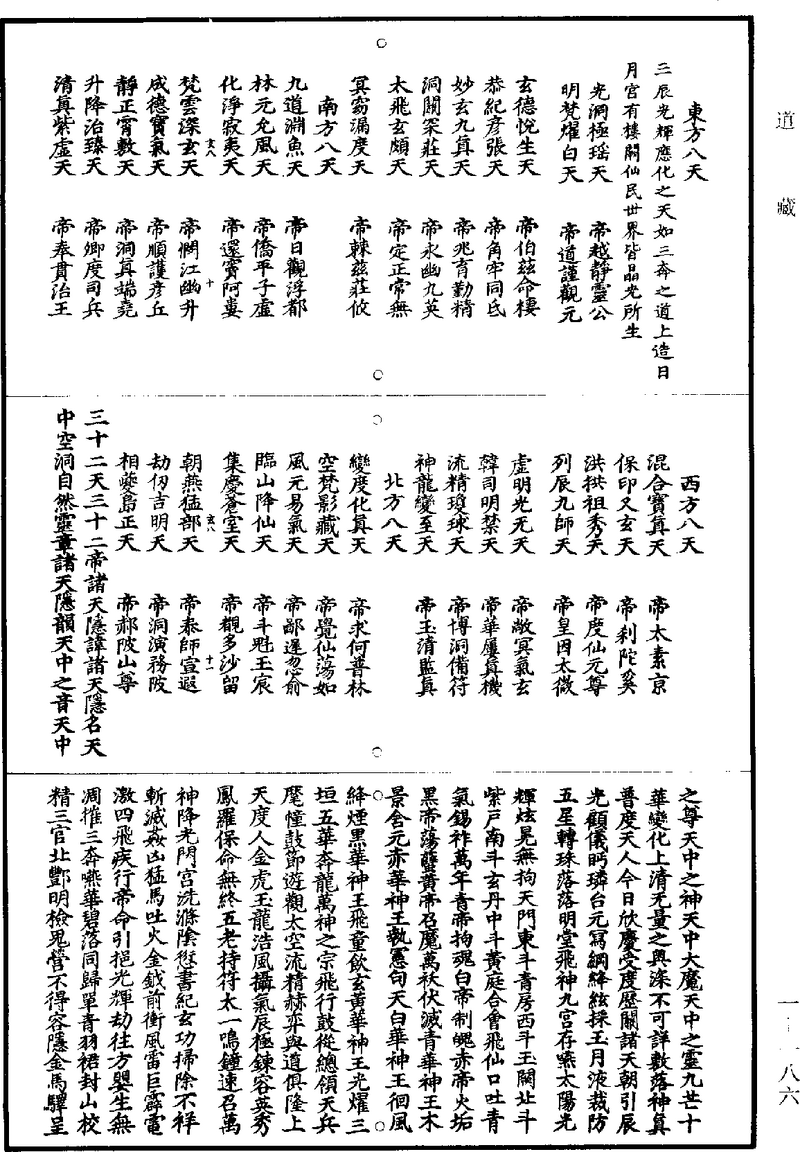 道藏
東方八天
三辰光輝應化之天如三奔之道上造日
月宮有樓閣仙民世界皆晶光所生
光洞極瑶天 帝越靜靈公
明梵燿白天 帝道謹觀元
玄德悅生天 帝伯兹命棲
恭紀彦張天 帝角牢同氐
妙玄九真天 帝兆育勤精
洞關梁莊天 帝永幽九英
太飛玄頤天 帝定正常無
冥窈漏度天 帝棘兹莊攸
南方八天
九道淵魚天 帝日觀浮都
林元允風天 帝僑平子虛
化淨寂夷天 帝還寶阿婁
玄八 十
梵雲深玄天 帝惘江幽升
咸德寶氣天 帝順護彦丘
靜正霄敷天 帝洞真端堯
升降治臻天 帝卿度司兵
清真紫虛天 帝奉貫治王
西方八天
混合寶真天 帝太素京
保印又玄天 帝利陀奚
洪拱祖秀天 帝度仙元尊
列辰九師天 帝皇因太微
虛明光无天 帝敞冥氣玄
韓司明禁天 帝華屢真機
流精瓊球天 帝博洞備符
神龍變至天 帝玉清監真
北方八天
變度化真天 帝求何普林
空梵影藏天 帝覺仙蕩如
風元易氣天 帝鄙遲忽俞
臨山降仙天 帝斗魁王宸
集慶蒼室天 帝觀多沙留
玄八 十一
朝燕猛部天 帝泰師宣遐
劫仞吉明天 帝洞演務陂
相夔島正天 帝郝陂山尊
三十二天三十二帝諸天隱諱諸天隱名天
中空洞自然靈章諸天隱韻天中之音天中
之尊天中之神天中大魔天中之靈九世十
華變化上清无量之奥深不可詳敷落神真
普度天人今日欣慶受度歷關諸天朝引辰
光顧儀眄璘台元冩綱絳絃採玉月液裁防
五星轉珠落落明堂飛神九宮存嚥太陽光
輝炫晃無拘天門東斗青房西斗玉闕北斗
紫戸南斗玄丹中斗黃庭合會飛仙口吐青
氣錫祚萬年青帝拘魂白帝制魄赤帝火垢
黑帝蕩孽黃帝召魔萬袄伏滅青華神王木
景舍元赤華神王執憲句天白華神王徊風
絳煙黒華神王飛童飲玄黃華神王光燿三
垣五華奔龍萬神之宗飛行鼓從總領天兵
麾幢鼓節遊觀太空流精赫弈與道俱隆上
天度人金虎玉龍浩風攝氣辰極鍊容英秀
鳳羅保命無終五老持符太一鳴鐘速召萬
神降光門宮洗滌陰愆書紀玄功掃除不祥
斬滅姦凶猛馬吐火金鉞前衝風雷巨霹電
激四飛疾行帝命引挹光輝劫往方嬰生無
凋摧三奔嚥華碧落同歸單青羽裙封山校
精三官北酆明檢鬼營不得容隱金馬驛呈
一—一八六